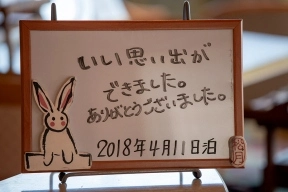 いい思い出が
できました。
ありがとうございました。
2018年4月11日泊